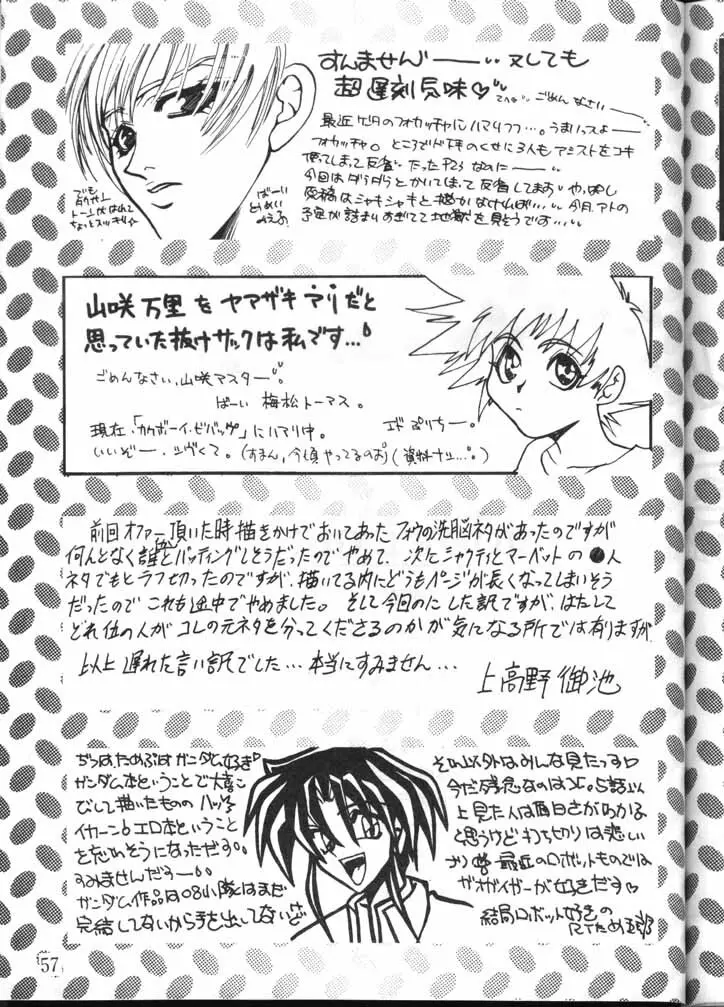 すんませんー又しても
超遅刻気味♡ ごめんなさいー
最近 のフォカッチャにハマりつつ…。うまいっスよー
フォカッチャ。ところでド下手のくせに3人もアシストをコキ
使ってしまって反省 だったP23なのにー
今回はダラダラとかいてしまって反省してます やっぱし
原稿はシャキシャキと描かなければ… 今月アトの
予定が詰まりすぎてて地獄を見そうです…
でも
トーンがはれて
ちょっとスッキリ
ばーい
山咲万里をヤマザキマリだと
思っていた抜けサックは私です…
ごめんなさい、山咲マスター。
ばーい 梅松トーマス。
現在、「カウボーイ・ビバップ」にハマリ中。
いいぞー、シブくて。(すまん、今頃やってるのお)(資料ナシ…。)
エドぷりちー。
前回オファー頂いた時描きかけでおいてあったフォウの洗脳ネタがあったのですが
何んとなく誰かとバッティングしそうだったのでやめて、次にシャクティとマーベットの●人
ネタでもとラフ切ったのですが、描いてる内にどうもページが長くなってしまいそう
だったのでこれも途中でやめました。そして今回のにした訳ですが、はたして
どれ位の人がコレの元ネタを分ってくださるのかが気になる所では有りますが
以上遅れた言い訳でした…本当にすみません…
上高野御池
ぢつはためぶはガンダム好き
ガンダム本ということで大喜
びして描いたものの ハッ!
イカーンらエロ本ということ
を忘れそうになっただす。
すみませんだすー
ガンダム作品は08小隊はまだ
完結してないから手を出してない
それ以外はみんな見たっす
今だ残念なのは
上見た人は面白さがわかる
と思うけど打ち切りは悲しい
最近のロボットものでは
ガオガイガーが好きだす♡
結局ロボット好きの
RTため
57